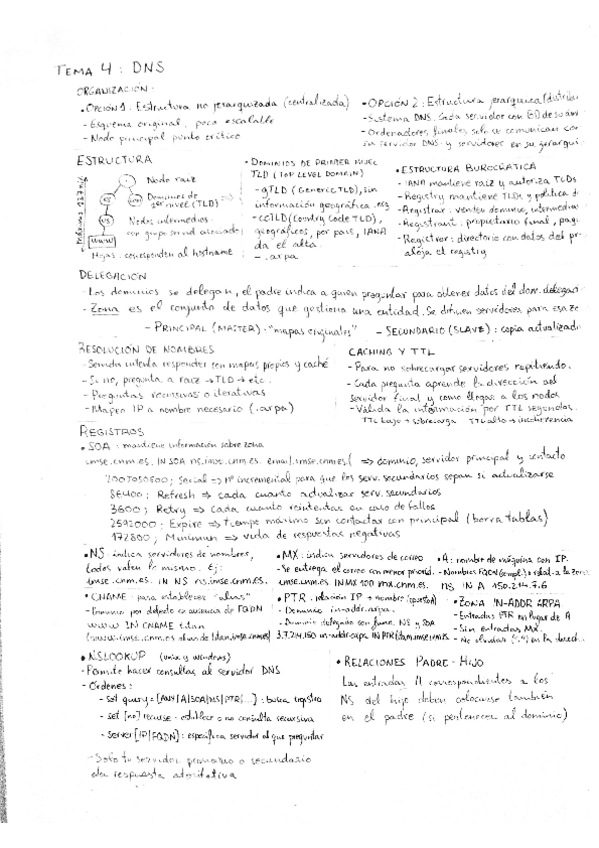 TEMA 4 : DNS
ORGANIZACIÓN:
• OPCIÓN 1: Estructura no jerarquizada (centralizada)
- Esquema original, poco escalable
- Nodo principal punto crítico
• OPCIÓN 2: Estructura jerárquica (distribu
- Sistema DNS. Cada servidor con BD de su
- Ordenadores finales solo se comunican con
su servidor DNS y servidores en su jerarqui
ESTRUCTURA
Nodo raíz
Dominios de
1er nivel (TLD)
Nodos intermedios
con grupo servid asociado
www
Hojas: corresponden al hostname
• DOMINIOS DE PRIMER NIVEL
TLD (TOP LEVEL DOMAIN)
- gTLD (Generic TLD), sin
información geográfica .org
- ccTLD (Country Code TLD),
geográficos, por país, IANA
da el alta.
- .arpa
• ESTRUCTURA BUROCRÁTICA
- IANA mantiene raíz y autoriza TLDs
- Registry mantiene TLDs y política d
- Registrar: vende dominios, intermedia
- Registrant: propietario final, pag
- Registrer: directorio con datos del pr
aloja el registry
DELEGACIÓN
- Los dominios se delegan, el padre indica a quien preguntar para obtener datos del dom. delegad
- Zona es el conjunto de datos que gestiona una entidad. Se definen servidores para esa zo
- PRINCIPAL (MASTER): "mapas originales"
- SECUNDARIO (SLAVE): copia actualizad
RESOLUCIÓN DE NOMBRES
- Servidor intenta responder con mapas propios y caché
- Si no, pregunta a raíz → TLD → etc.
- Preguntas recursivas o iterativas
- Mapeo IP a nombre necesario (.arpa)
CACHING Y TTL
- Para no sobrecargar servidores repitiendo.
- Cada pregunta aprende la dirección del
servidor final y como llegar a los nodos
- Válida la información por TTL segundos.
TTL bajo → sobrecarga TTL alto → incoherencia
REGISTROS
• SOA: mantiene información sobre zona
imse.cnm.es. IN SOA ns.imse.cnm.es. email.imse.cnm.es. ( ⇒ dominio, servidor principal y contacto
; Serial ⇒ nº incremental para que los serv. secundarios sepan si actualizarse
86400; Refresh ⇒ cada cuanto actualizar serv. secundarios
3600; Retry ⇒ cada cuanto reintentar en caso de fallos
2592000; Expire ⇒ tiempo máximo sin contactar con principal (borra tablas)
172800; Minimum ⇒ vida de respuestas negativas
• NS: indica servidores de nombres,
todos valen lo mismo. Ej:
imse.cnm.es. IN NS ns.imse.cnm.es.
• CNAME: para establecer "alias"
- Dominio por defecto en ausencia de FQDN
www IN CNAME titan
(www.imse.cnm.es alias de titan.imse.cnm.es)
• MX: indica servidores de correo
- Se entrega el correo con menor priorid.
imse.cnm.es. IN MX 100 mx.cnm.es.
• PTR: relación IP → nombre (opuesto A)
- Dominio in-addr.arpa.
- Dominio delegado con NS y SOA
3.7.214.150.in-addr.arpa IN PTR titan.imse.cnm.es.
• A: nombre de máquina con IP.
- Nombres FQDN (compl.) o relat. a la zona
ns IN A 150.214.7.6
• ZONA IN-ADDR ARPA
- Entradas PTR en lugar de A
- Sin entradas MX.
- No olvidar (".") en la direcc.
• NSLOOKUP (unix y windows)
- Permite hacer consultas al servidor DNS
- Ordenes:
- set query=[ANY|A|SOA|NS|PTR|...]: busca registro
- set [no]recurse - establece o no consulta recursiva
- server [IP|FQDN]: especifica servidor al que preguntar
- Solo tu servidor primario o secundario
da respuesta autoritativa
• RELACIONES PADRE-HIJO
Las entradas A correspondientes a los
NS del hijo deben colocarse también
en el padre (si pertenecen al dominio)